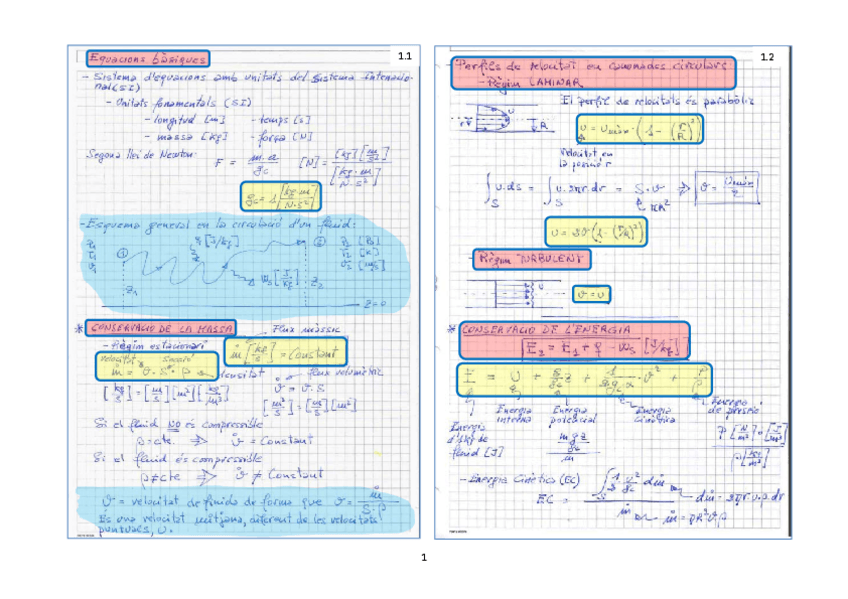 1.1
Equacions bàsiques
- Sistema d'equacions amb unitats del Sistema Internacio-
nal (SI)
- Unitats fonamentals (SI)
- longitud [m] - temps [s]
- massa [kg] - força [N]
Segona llei de Newton: F = m·a / gc [N] = [kg][m/s²] / [kg·m / N·s²]
gc = 1 [kg·m / N·s²]
- Esquema general en la circulació d'un fluid:
Z1 Z2
Z=0
* CONSERVACIÓ DE LA MASSA
Flux màssic
- Règim estacionari
ṁ [kg/s] = Constant
velocitat secció
ṁ = v·S·ρ densitat
flux volumètric
v̇ = v·S
[kg/s] = [m/s][m²][kg/m³]
[m³/s] = [m/s][m²]
Si el fluid NO és compressible
ρ = cte. ⇒ v̇ = Constant
Si el fluid és compressible
ρ ≠ cte ⇒ v̇ ≠ Constant
v = velocitat de fluido de forma que v = ṁ / S·ρ
És una velocitat mitjana, diferent de les velocitats
puntuals, u.
1.2
Perfils de velocitat en canonades circulars
- Règim LAMINAR
El perfil de velocitats és parabòlic
u = umàx · (1 - (r/R)²)
velocitat en
la posició r
∫S u·ds = ∫S u·2πr·dr = S·v ⇒ v = umàx / 2
πR²
u = 2v(1 - (r/R)²)
- Règim TURBULENT
v = u
* CONSERVACIÓ DE L'ENERGIA
E2 = E1 + q - ws [J/kg]
Energia
interna
Energia
potencial
Energia
cinètica
Energia
de pressió
Energia
d'1 kg de
fluid [J]
- Energia Cinètica (EC)
EC = ∫S 1/2 u²/gc dṁ / ṁ
dṁ = 2πr·u·ρ·dr
ṁ = πR²vρ
1